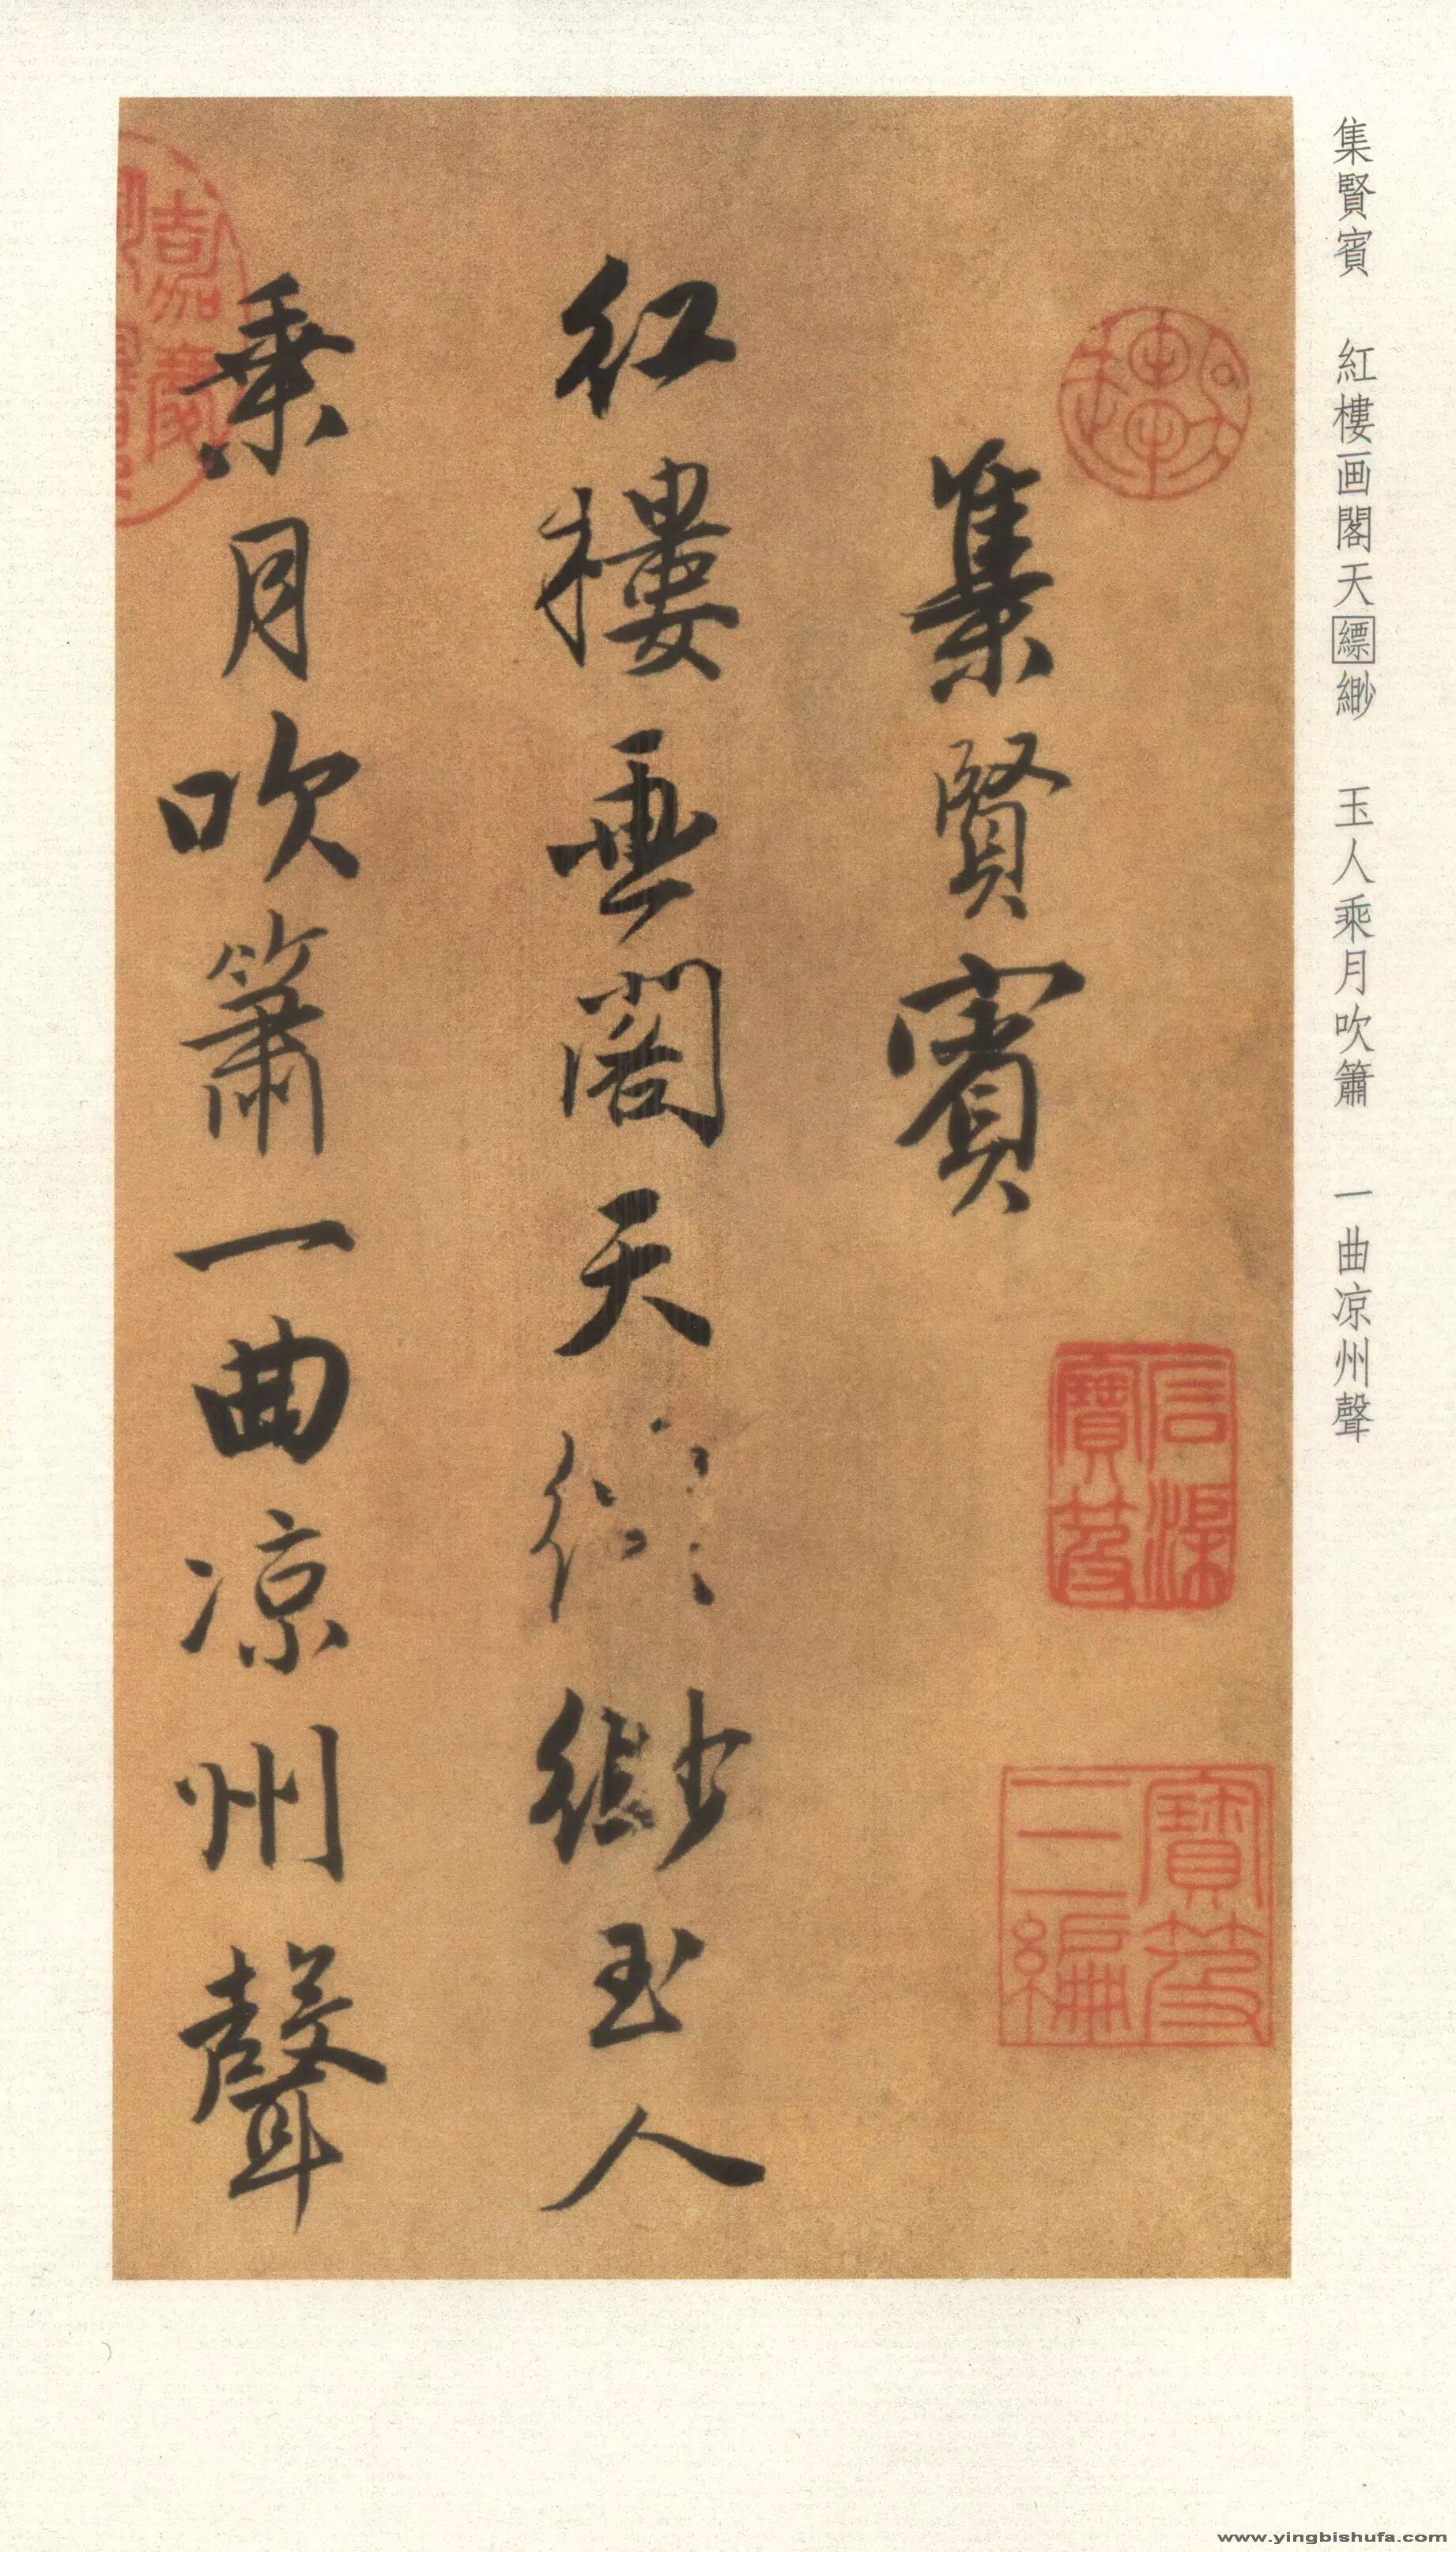 集賢賓　紅樓画閣天縹緲　玉人乘月吹簫　一曲凉州聲
集賢賓
紅樓畫閣天縹緲玉人
乘月吹簫一曲凉州聲
信天主人
寶笈
三編
www.yingbishufa.com